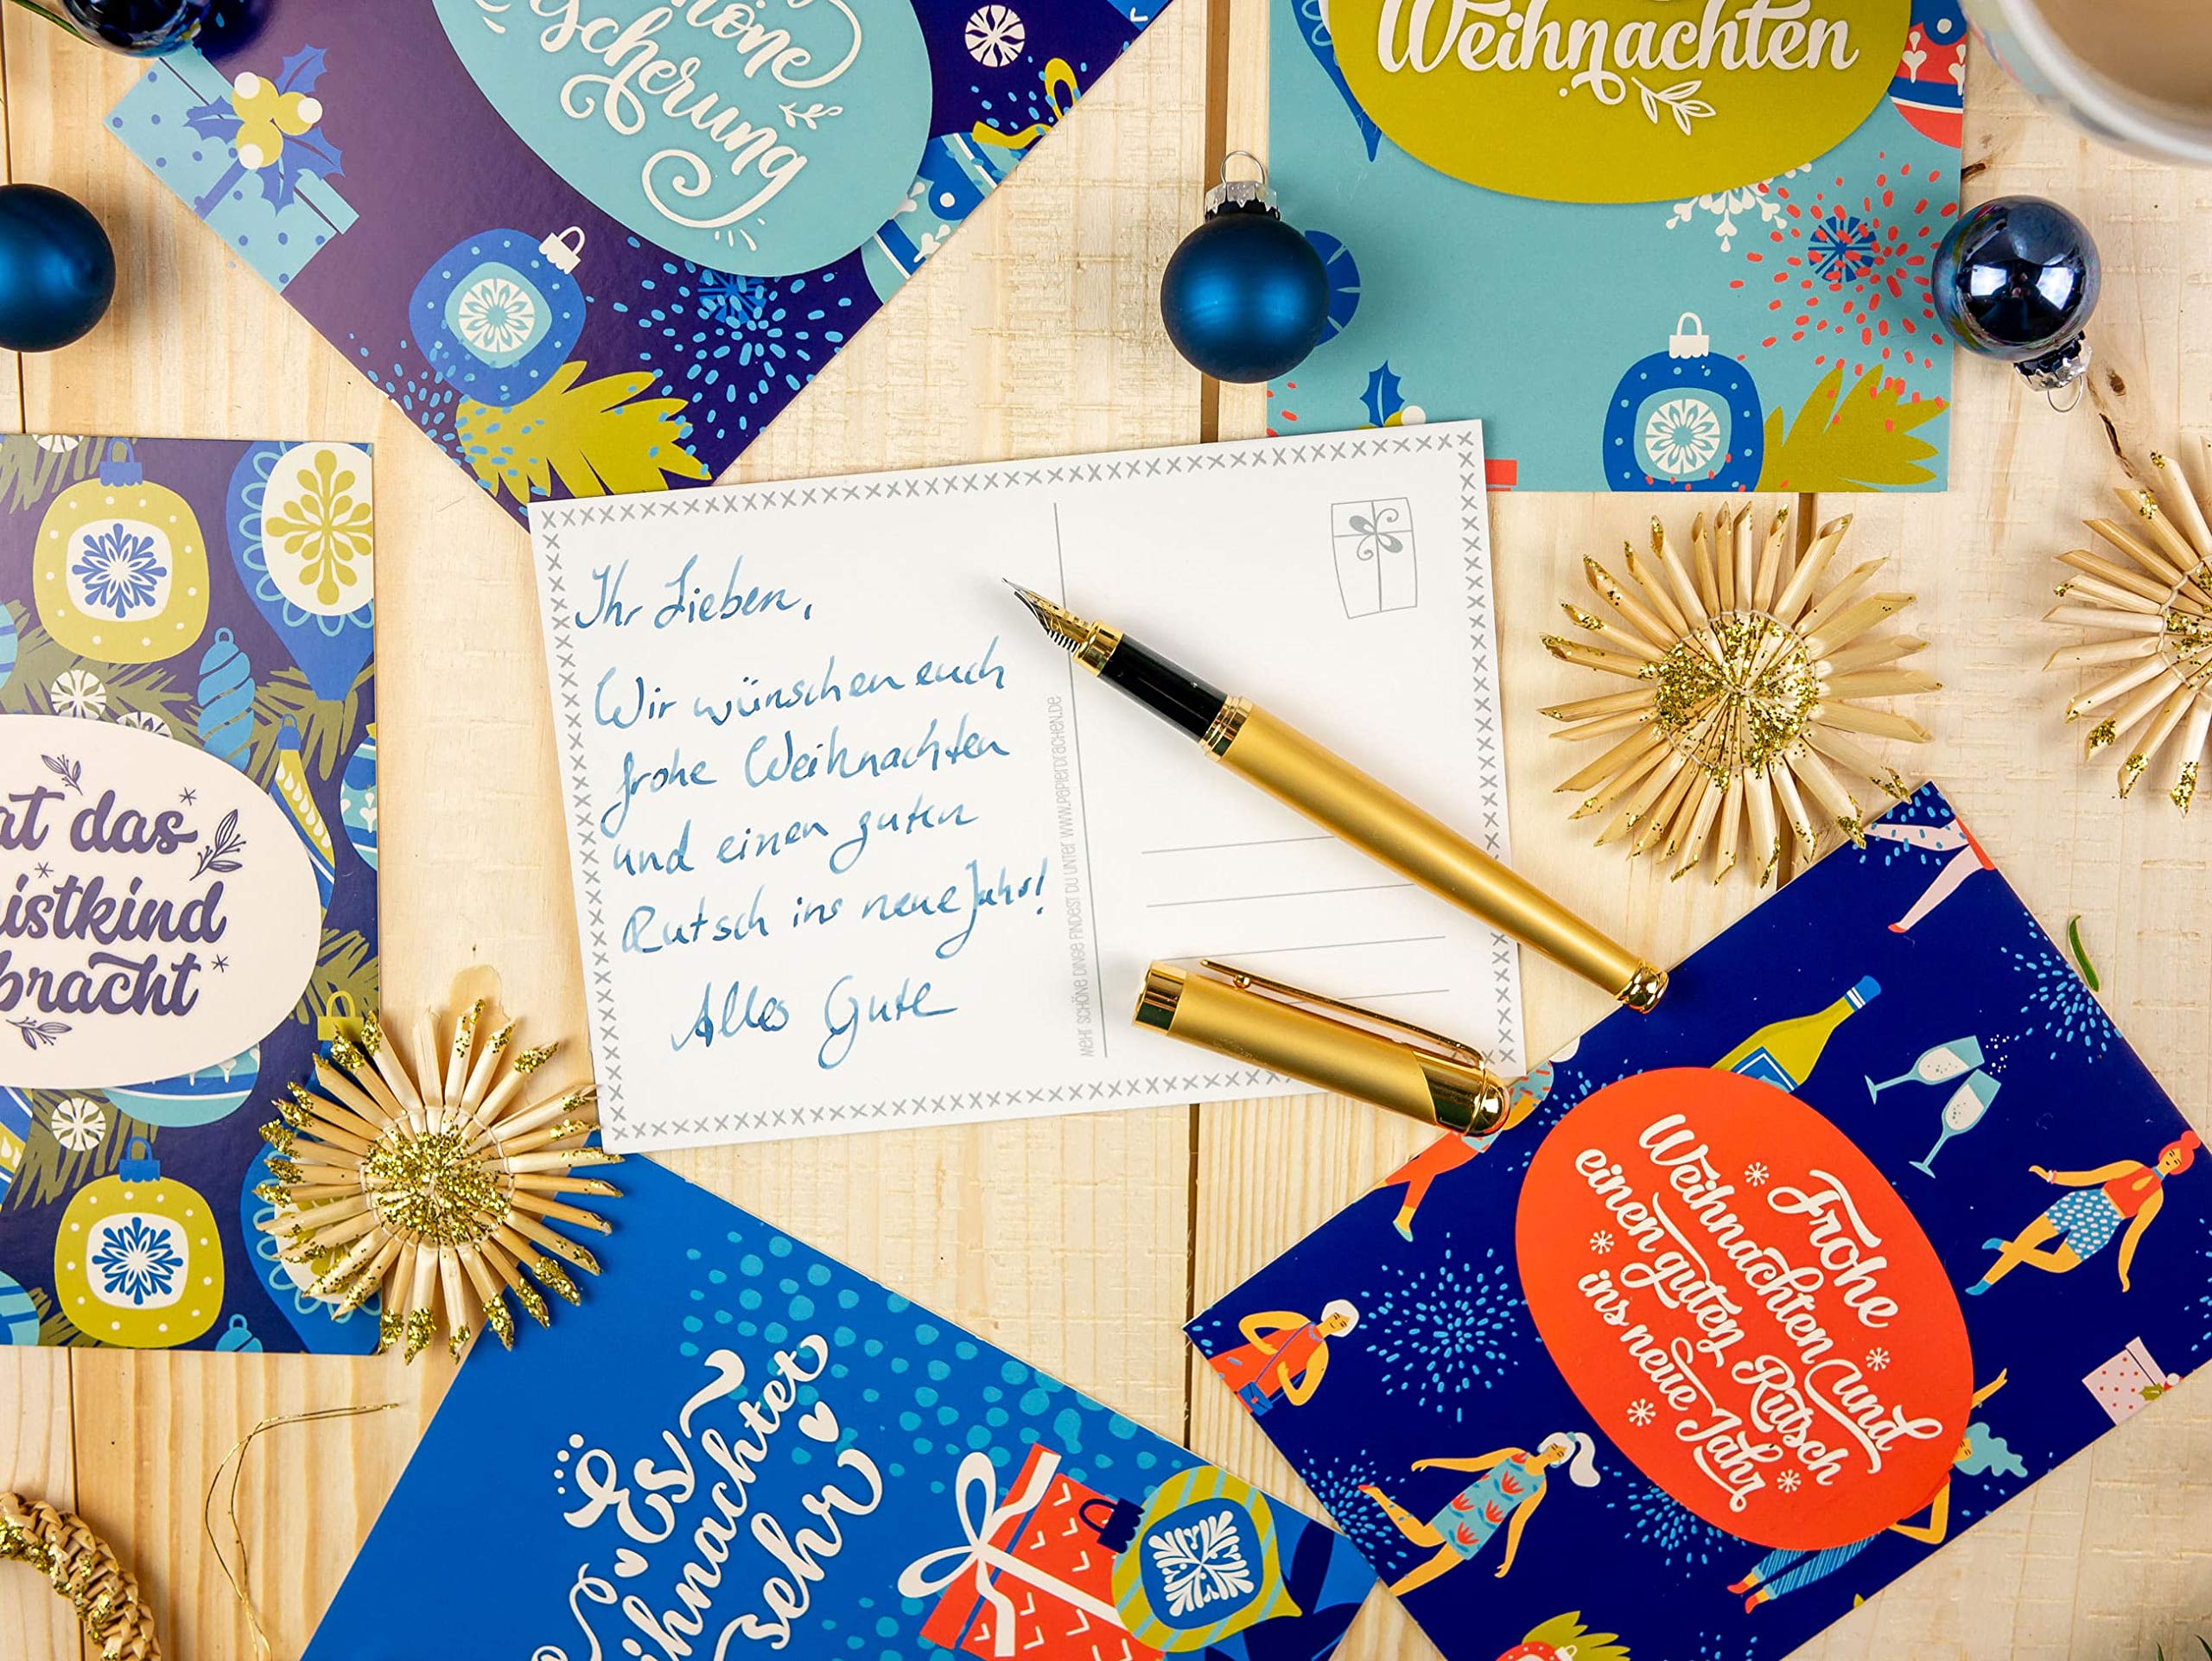 scherung
Weihnachten
Ihr Lieben,
Wir wünschen euch
frohe Weihnachten
und einen guten
Rutsch ins neue Jahr!
Alles Gute
MEHR SCHÖNE DINGE FINDEST DU UNTER WWW.PAPIERDRACHEN.DE
at das
istkind
bracht
Es
ihnachtet
sehr
Frohe
Weihnachten und
einen guten Rutsch
ins neue Jahr